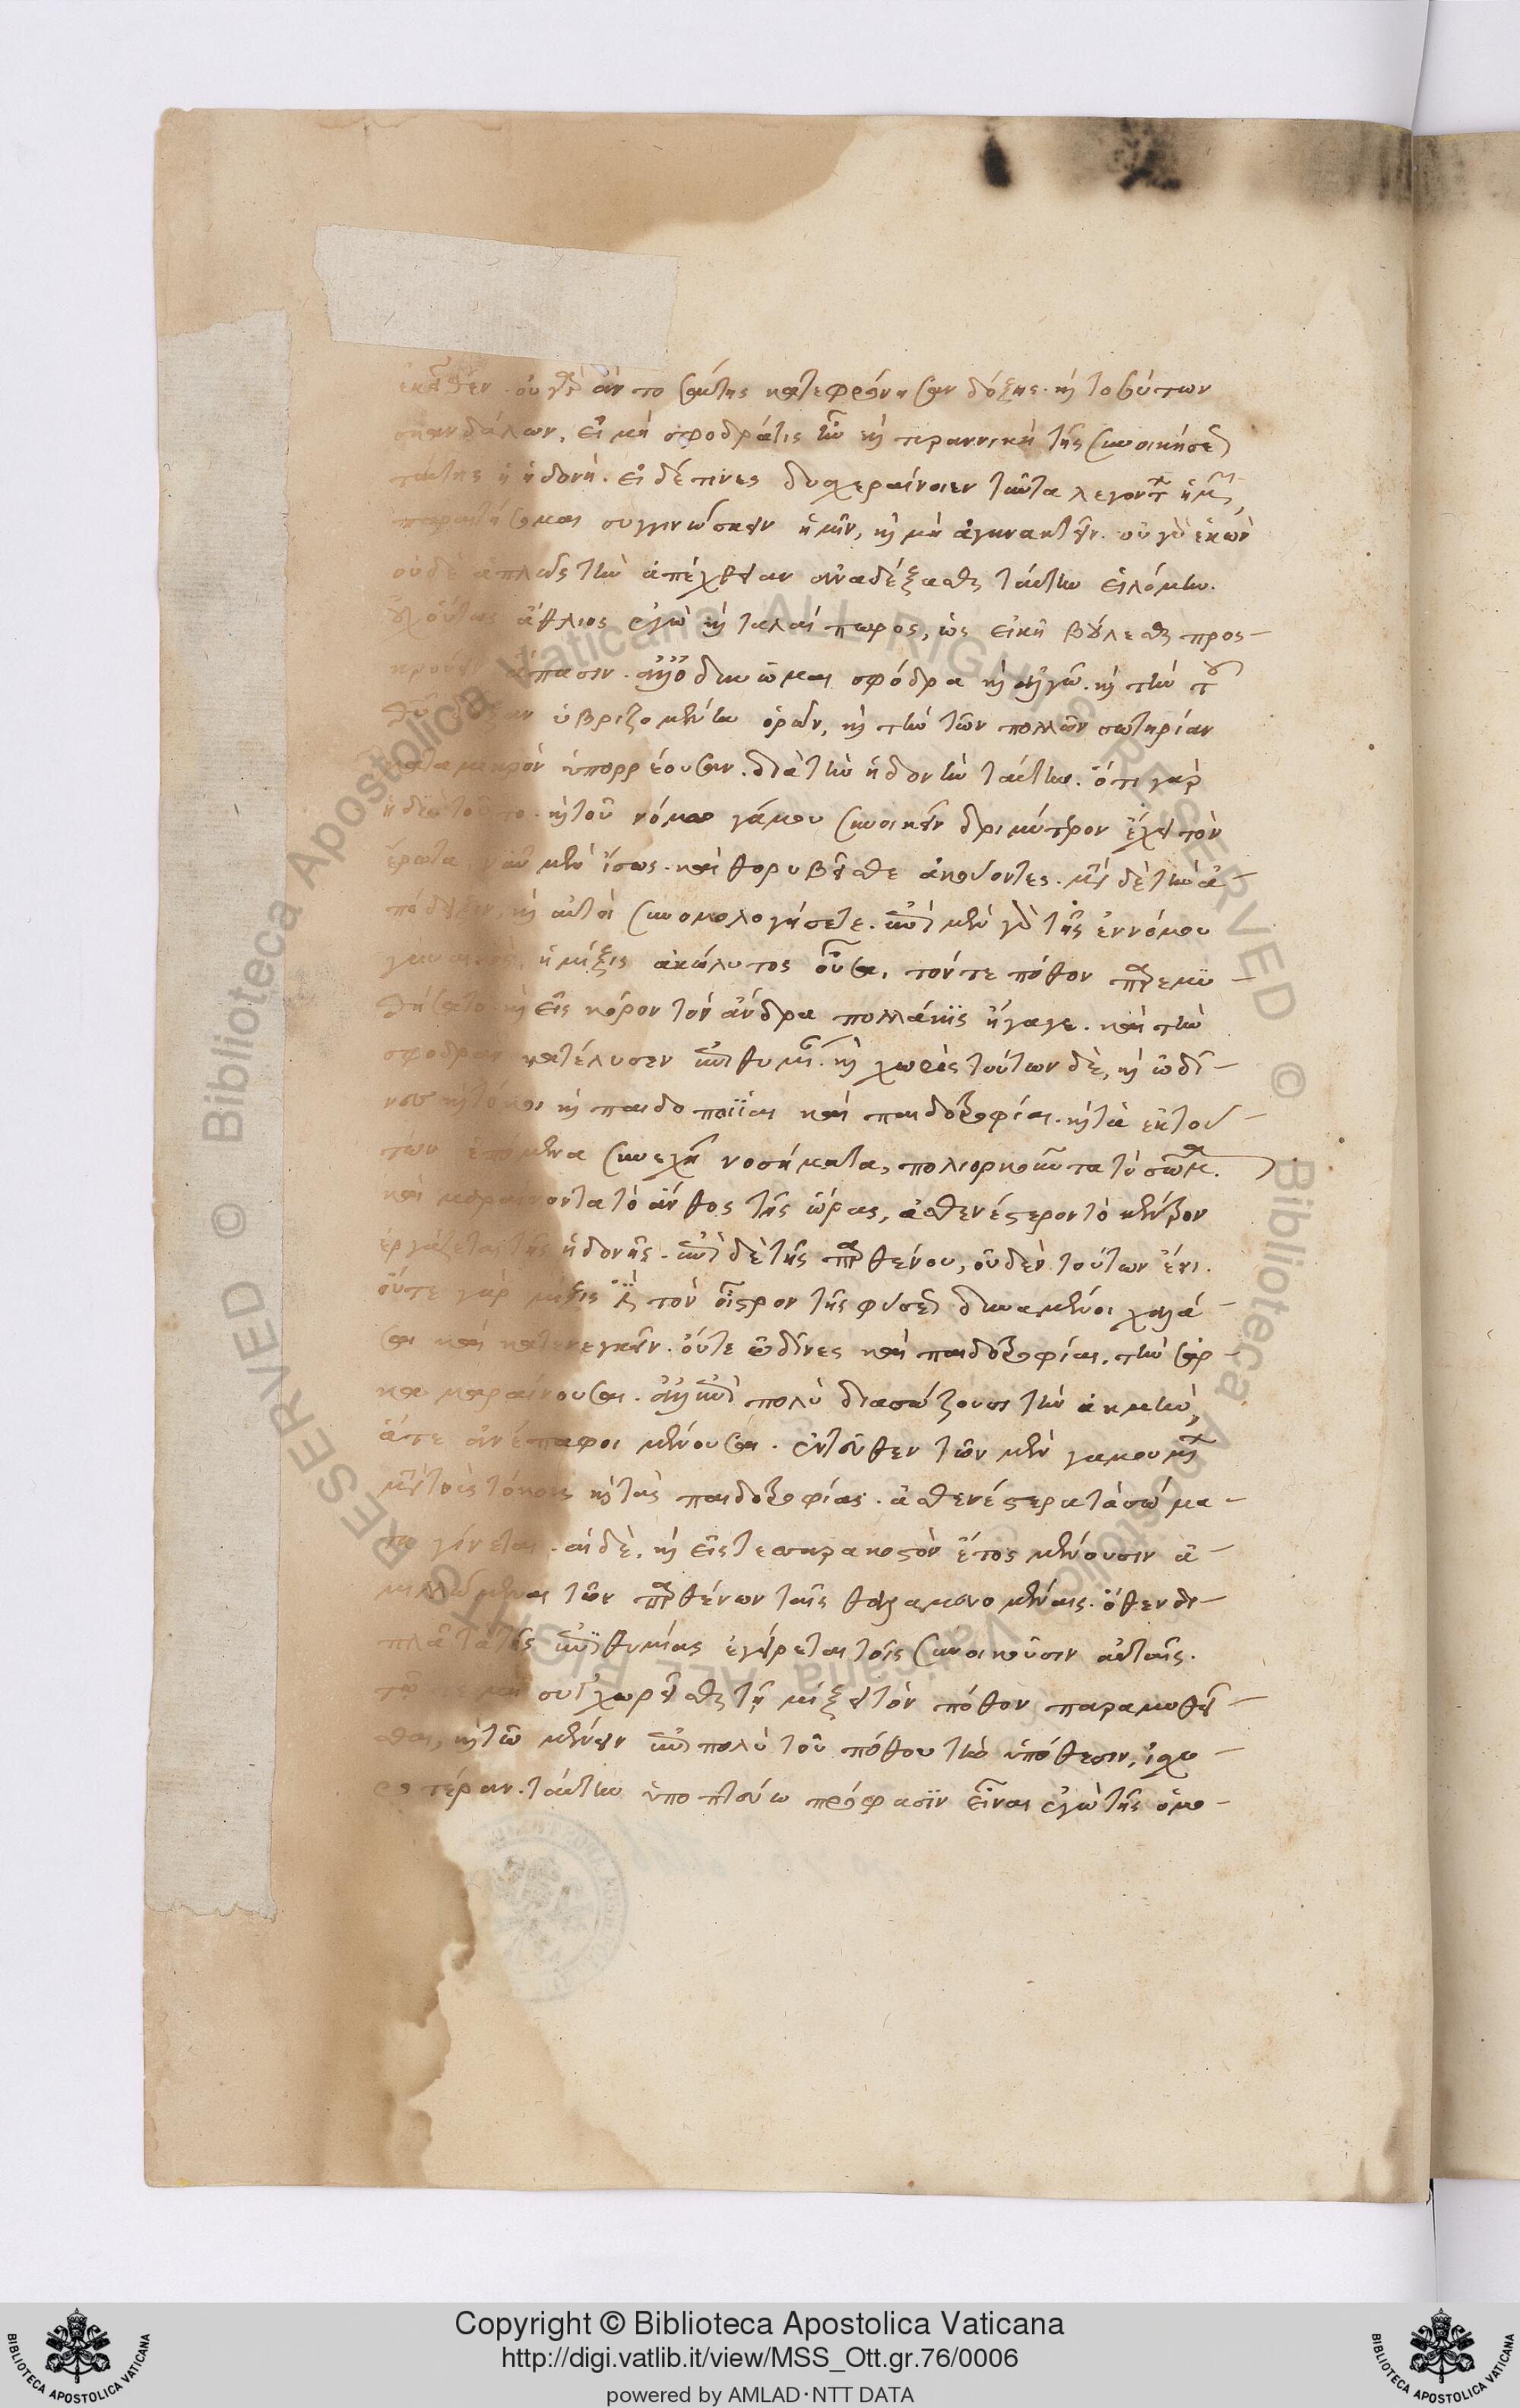 ἐκεῖθεν. οὐ γὰρ ἂν τοσαύτης κατεφρόνησαν δόξης. καὶ τοσούτων
σκανδάλων, εἰ μὴ σφοδρά τις ἦν καὶ τυραννικὴ τῆς συνοικήσεως
ταύτης ἡ ἡδονή. εἰ δέ τινες δυσχεραίνοιεν ταῦτα λεγόντων ἡμῶν,
παραιτήσομαι συγγινώσκειν ἡμῖν, καὶ μὴ ἀγανακτεῖν. οὐ γὰρ ἑκὼν
οὐδὲ ἁπλῶς τὴν ἀπέχθειαν ἀναδέξασθαι ταύτην εἱλόμην.
οὐχ οὕτως ἄθλιος ἐγὼ καὶ ταλαίπωρος, ὡς εἰκῆ βούλεσθαι προσ-
κρούειν ἅπασιν. ἀλλ' ὀδυνῶμαι σφόδρα καὶ ἀλγῶ. καὶ τὴν τοῦ
θεοῦ δόξαν ὑβριζομένην ὁρῶν, καὶ τὴν τῶν πολλῶν σωτηρίαν
κατὰ μικρὸν ὑπορρέουσαν. διὰ τὴν ἡδονὴν ταύτην. ὅτι γὰρ
ἡδὺ τοῦτο. καὶ τοῦ νόμου γάμου συνοικεῖν δριμύτερον ἔχει τὸν
ἔρωτα νῦν μὲν ἴσως. καὶ θορυβεῖσθε ἀκούοντες. μετὰ δὲ τὴν ἀ-
πόδειξιν, καὶ αὐτοὶ συνομολογήσετε. ἐπὶ μὲν γὰρ τῆς ἐννόμου
γυναικὸς, ἡ μῖξις ἀκώλυτος οὖσα, τόν τε πόθον παρεμυ-
θήσατο. καὶ εἰς κόρον τὸν ἄνδρα πολλάκις ἤγαγε. καὶ τὴν
σφοδρὰν κατέλυσεν ἐπιθυμίαν. καὶ χωρὶς τούτων δὲ, καὶ ὠδῖ-
νες καὶ τόκοι καὶ παιδοποιΐαι καὶ παιδοτροφίαι. καὶ τὰ ἐκ τού-
των ἑπόμενα συνεχῆ νοσήματα, πολιορκοῦντα τὸ σῶμα.
καὶ μαραίνοντα τὸ ἄνθος τῆς ὥρας, ἀσθενέστερον τὸ κέντρον
ἐργάζεται τῆς ἡδονῆς. ἐπὶ δὲ τῆς παρθένου, οὐδὲν τούτων ἔνι.
οὔτε γὰρ μῖξις ἐστὶ τὸν οἶστρον τῆς φύσεως δυναμένη χαλά-
σαι καὶ κατενεγκεῖν. οὔτε ὠδῖνες καὶ παιδοτροφίαι. τὴν σάρ-
κα μαραίνουσαι. ἀλλ' ἐπὶ πολὺ διασώζουσι τὴν ἀκμὴν,
ἅτε ἀνέπαφοι μένουσαι. ἐντεῦθεν τῶν μὲν γαμουμένων
μετὰ τοὺς τόκους καὶ τὰς παιδοτροφίας. ἀσθενέστερα τὰ σώμα-
τα γίνεται. αἱ δὲ, καὶ εἰς τεσσαρακοστὸν ἔτος μένουσιν ἁ-
μιλλώμεναι τῶν παρθένων ταῖς θαλαμευομέναις. ὅθεν δι-
πλᾶ τὰ τῆς ἐπιθυμίας ἐγείρεται τοῖς συνοικοῦσιν αὐταῖς.
τῷ τε μὴ συγχωρεῖσθαι τῇ μίξει τὸν πόθον παραμυθεῖ-
σθαι, καὶ τῷ μένειν ἐπὶ πολὺ τοῦ πόθου τὴν ὑπόθεσιν, ἰσχυ-
ροτέραν. ταύτην ὑποπτεύω πρόφασιν εἶναι ἐγὼ τῆς ὁμο-
Copyright © Biblioteca Apostolica Vaticana
http://digi.vatlib.it/view/MSS_Ott.gr.76/0006
powered by AMLAD·NTT DATA